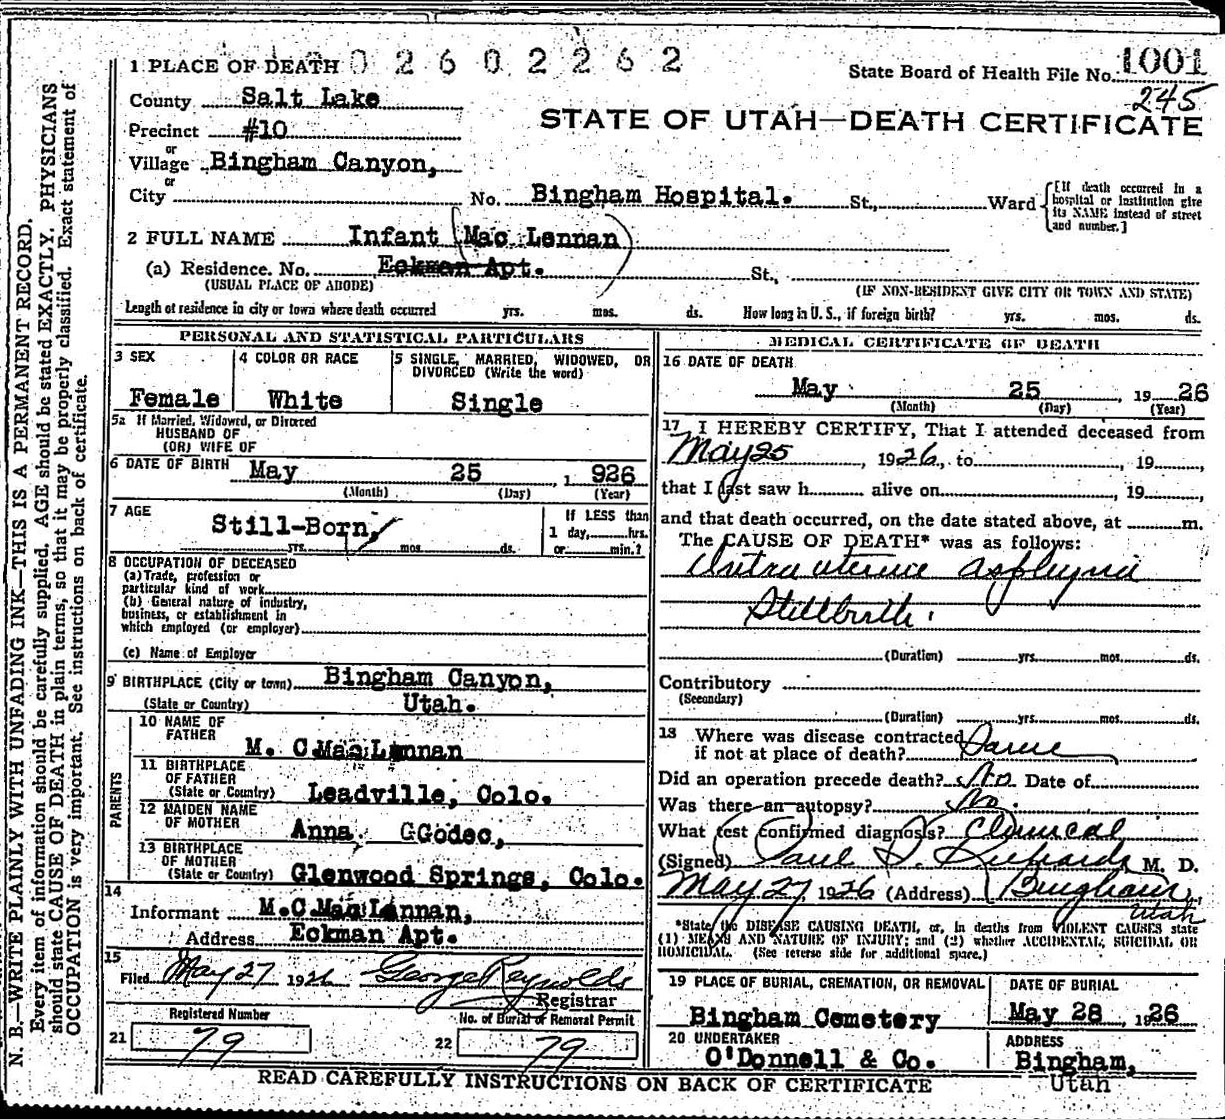 1 PLACE OF DEATH 0 2 6 0 2 2 6 2
State Board of Health File No. 1001
245
County Salt Lake
STATE OF UTAH—DEATH CERTIFICATE
Precinct #10
or
Village Bingham Canyon,
or
City No. Bingham Hospital. St., Ward
[If death occurred in a
hospital or institution give
its NAME instead of street
and number.]
2 FULL NAME Infant (Mac Lennan)
(a) Residence. No. Eckman Apt. St.,
(USUAL PLACE OF ABODE) (IF NON-RESIDENT GIVE CITY OR TOWN AND STATE)
Length of residence in city or town where death occurred yrs. mos. ds. How long in U. S., if foreign birth? yrs. mos. ds.
PERSONAL AND STATISTICAL PARTICULARS
3 SEX
Female
4 COLOR OR RACE
White
5 SINGLE, MARRIED, WIDOWED, OR
DIVORCED (Write the word)
Single
5a If Married, Widowed, or Divorced
HUSBAND OF
(OR) WIFE OF
6 DATE OF BIRTH May 25, 1 926
(Month) (Day) (Year)
7 AGE
Still-Born,
yrs. mos. ds.
If LESS than
1 day, hrs.
or min.?
8 OCCUPATION OF DECEASED
(a) Trade, profession or
particular kind of work
(b) General nature of industry,
business, or establishment in
which employed (or employer)
(c) Name of Employer
9 BIRTHPLACE (City or town) Bingham Canyon,
(State or Country) Utah.
PARENTS
10 NAME OF
FATHER
M. C.Mac Lennan
11 BIRTHPLACE
OF FATHER
(State or Country) Leadville, Colo.
12 MAIDEN NAME
OF MOTHER
Anna GGodec,
13 BIRTHPLACE
OF MOTHER
(State or Country) Glenwood Springs, Colo.
14
Informant M.C.Mac Lennan,
Address Eckman Apt.
15
Filed May 27 1926 George Reynolds
Registrar
Registered Number
No. of Burial or Removal Permit
21 79
22 79
MEDICAL CERTIFICATE OF DEATH
16 DATE OF DEATH
May 25, 19 26
(Month) (Day) (Year)
17 I HEREBY CERTIFY, That I attended deceased from
May 25, 1926, to , 19
that I last saw h alive on , 19 ,
and that death occurred, on the date stated above, at m.
The CAUSE OF DEATH* was as follows:
Intra uterine asphyxia
Stillbirth.
(Duration) yrs. mos. ds.
Contributory
(Secondary)
(Duration) yrs. mos. ds.
18 Where was disease contracted
if not at place of death? Same
Did an operation precede death? No Date of
Was there an autopsy? No.
What test confirmed diagnosis? Clinical
(Signed) Paul S. Richards M. D.
May 27, 1926 (Address) Bingham,
Utah
*State the DISEASE CAUSING DEATH, or, in deaths from VIOLENT CAUSES state
(1) MEANS AND NATURE OF INJURY; and (2) whether ACCIDENTAL, SUICIDAL OR
HOMICIDAL. (See reverse side for additional space.)
19 PLACE OF BURIAL, CREMATION, OR REMOVAL
Bingham Cemetery
DATE OF BURIAL
May 28, 1926
20 UNDERTAKER
O'Donnell & Co.
ADDRESS
Bingham,
Utah
READ CAREFULLY INSTRUCTIONS ON BACK OF CERTIFICATE
N. B.—WRITE PLAINLY WITH UNFADING INK—THIS IS A PERMANENT RECORD.
Every item of information should be carefully supplied. AGE should be stated EXACTLY. PHYSICIANS
should state CAUSE OF DEATH in plain terms, so that it may be properly classified. Exact statement of
OCCUPATION is very important. See instructions on back of certificate.